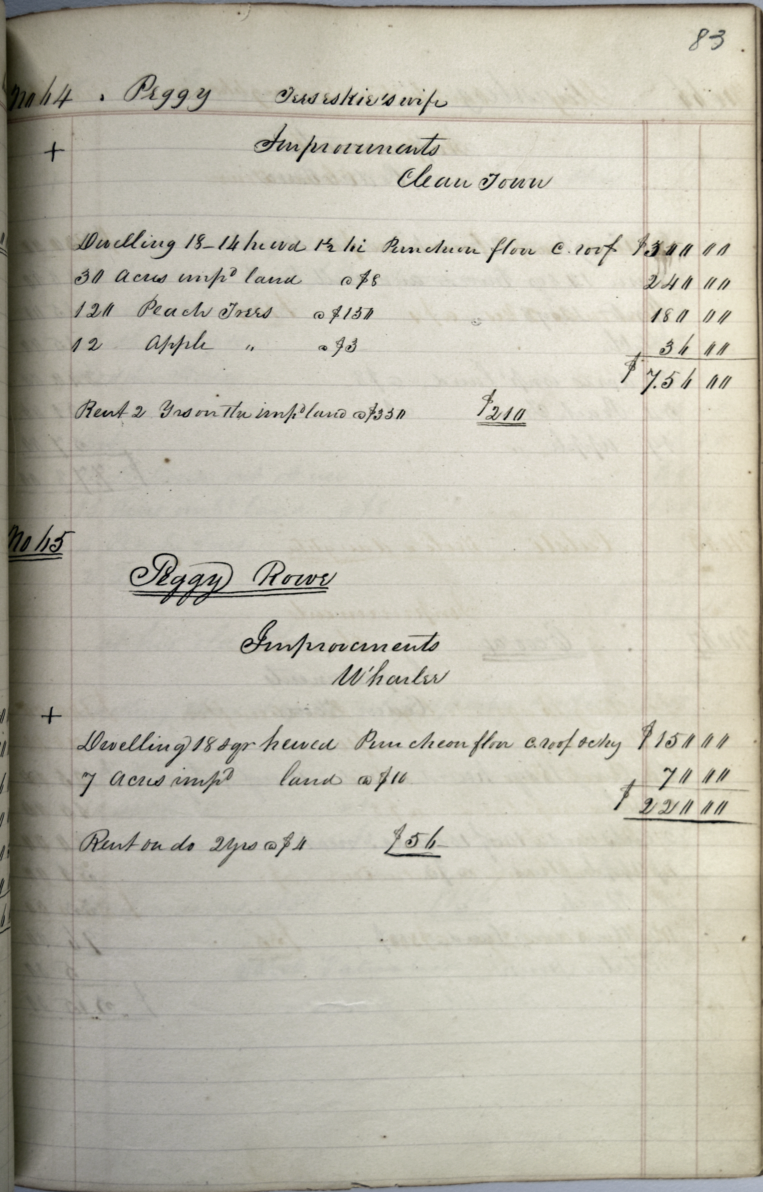 83
No 64 . Peggy Terseskie's wife
+ Improvements
Clean Town
Dwelling 18-14 hewd 1½ hi Puncheon floor c. roof $300 00
30 Acres imp'd land @ $8 240 00
120 Peach Trees @ $150 180 00
12 Apple " @ $3 36 00
$ 7.56 00
Rent 2 Yrs on the imp'd land @ $350 $210
No 65
Peggy Rowe
Improvements
Wharlee
+
Dwelling 18 sqr hewed Puncheon floor c. roof $150 00
7 Acres imp'd land @ $10 70 00
$ 220 00
Rent on do 2 yrs @ $4 $56